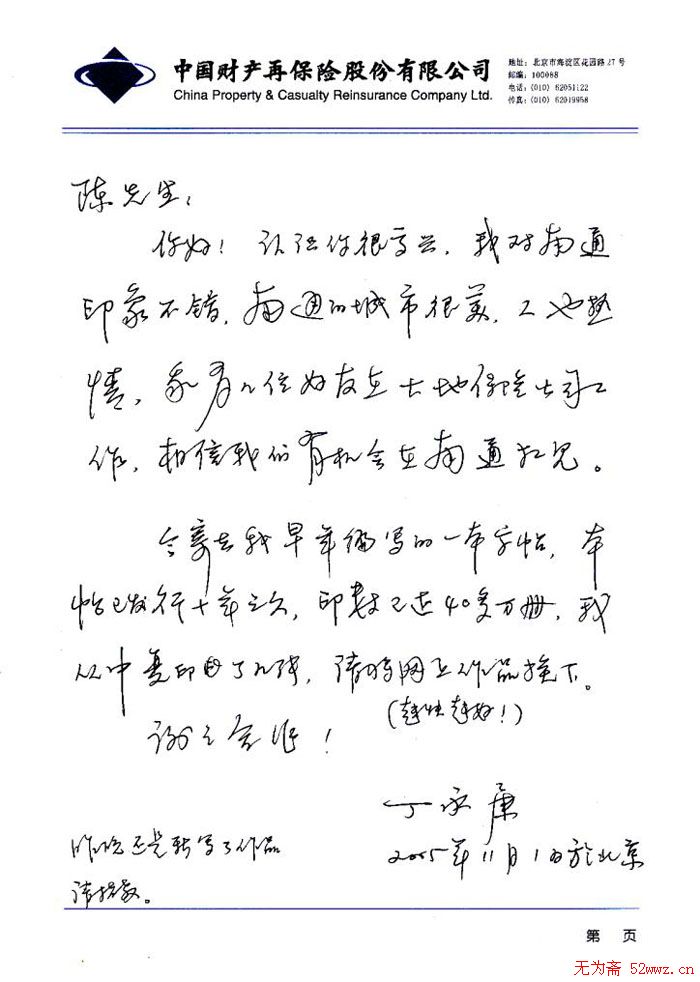 中国财产再保险股份有限公司
China Property & Casualty Reinsurance Company Ltd.
地址: 北京市海淀区花园路27号
邮编: 100088
电话: (010) 62051122
传真: (010) 62019958
陈先生:
你好! 认识你很高兴, 我对南通
印象不错, 南通的城市很美, 人也热
情, 我有几位好友在大地保险公司工
作, 相信我们有机会在南通相见。
今寄去我早年编写的一本字帖, 本
帖已发行十年之久, 印数已达40多万册, 我
从中复印了几张, 请将网上作品换下。
(越快越好!)
谢谢合作!
丁永康
2005年11月1日於北京
昨晚还是新写了作品
请指教。
第 页
无为斋 52wwz.cn